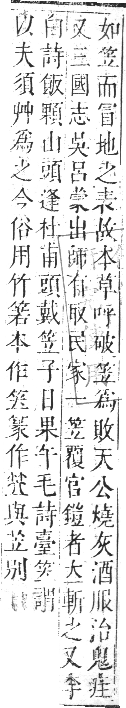 如笠而冒地之表故本草呼破笠為敗天公燒灰酒服治鬼疰
又三國志吳呂蒙出師有取民家一笠覆官鎧者大斬之又李
白詩飯顆山頭逢杜甫頭戴笠子日果午毛詩臺笠謂
以夫須艸為之今俗用竹箬本作笠篆作𥫱與苙別